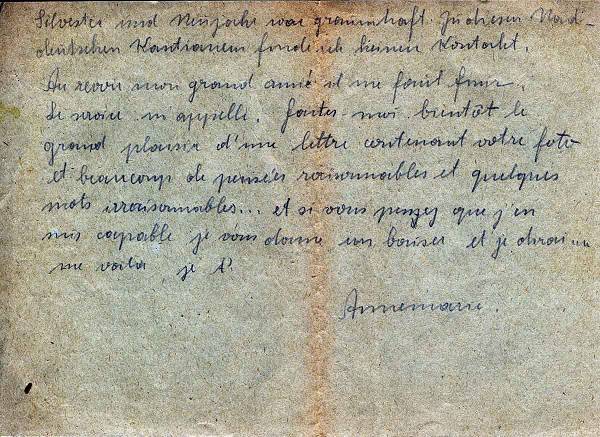 Silvester und Neujahr war grauenhaft. Zu diesen Nord-
deutschen Kantianern finde ich keinen Kontakt.
Au revoir mon grand ami il me faut finir.
Le service m'appelle. Faites-moi bientôt le
grand plaisir d'une lettre contenant votre foto
et beaucoup de pensées raisonnables et quelques
mots irraisonnables... et si vous pensez que j'en
suis capable je vous donne un baiser et je dirai
me voila, je
Annemarie.